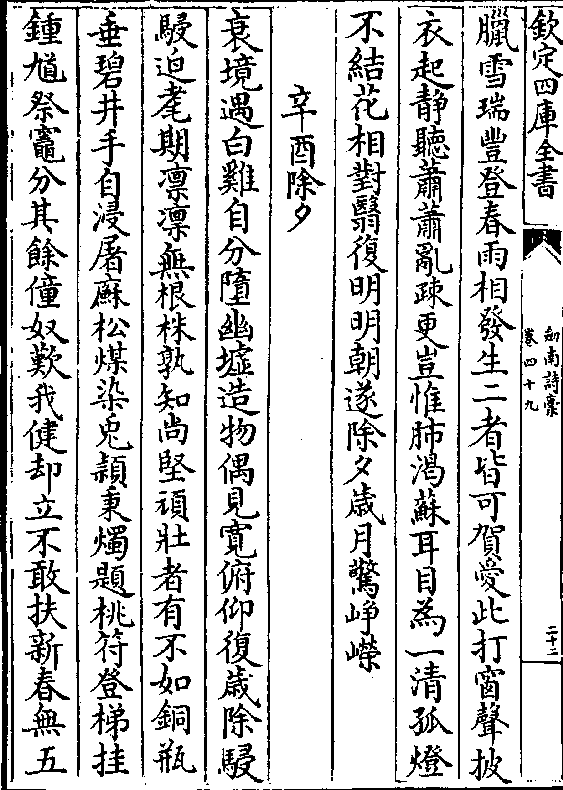 欽定四庫全書
劍南詩稾
卷四十九
二十二
臘雪瑞豐登春雨相發生二者皆可賀愛此打窗聲披
衣起靜聽蕭蕭亂疎更豈惟肺渇蘇耳目為一清孤燈
不結花相對翳復明明朝遂除夕歳月驚崢嶸
辛酉除夕
衰境遇白雞自分墮幽墟造物偶見寛俯仰復歳除駸
駸迫耄期凛凛無根株孰知尚堅頑壯者有不如銅瓶
垂碧井手自浸屠麻松煤染兎穎秉燭題桃符登梯挂
鍾馗祭竈分其餘僮奴歎我健却立不敢扶新春無五